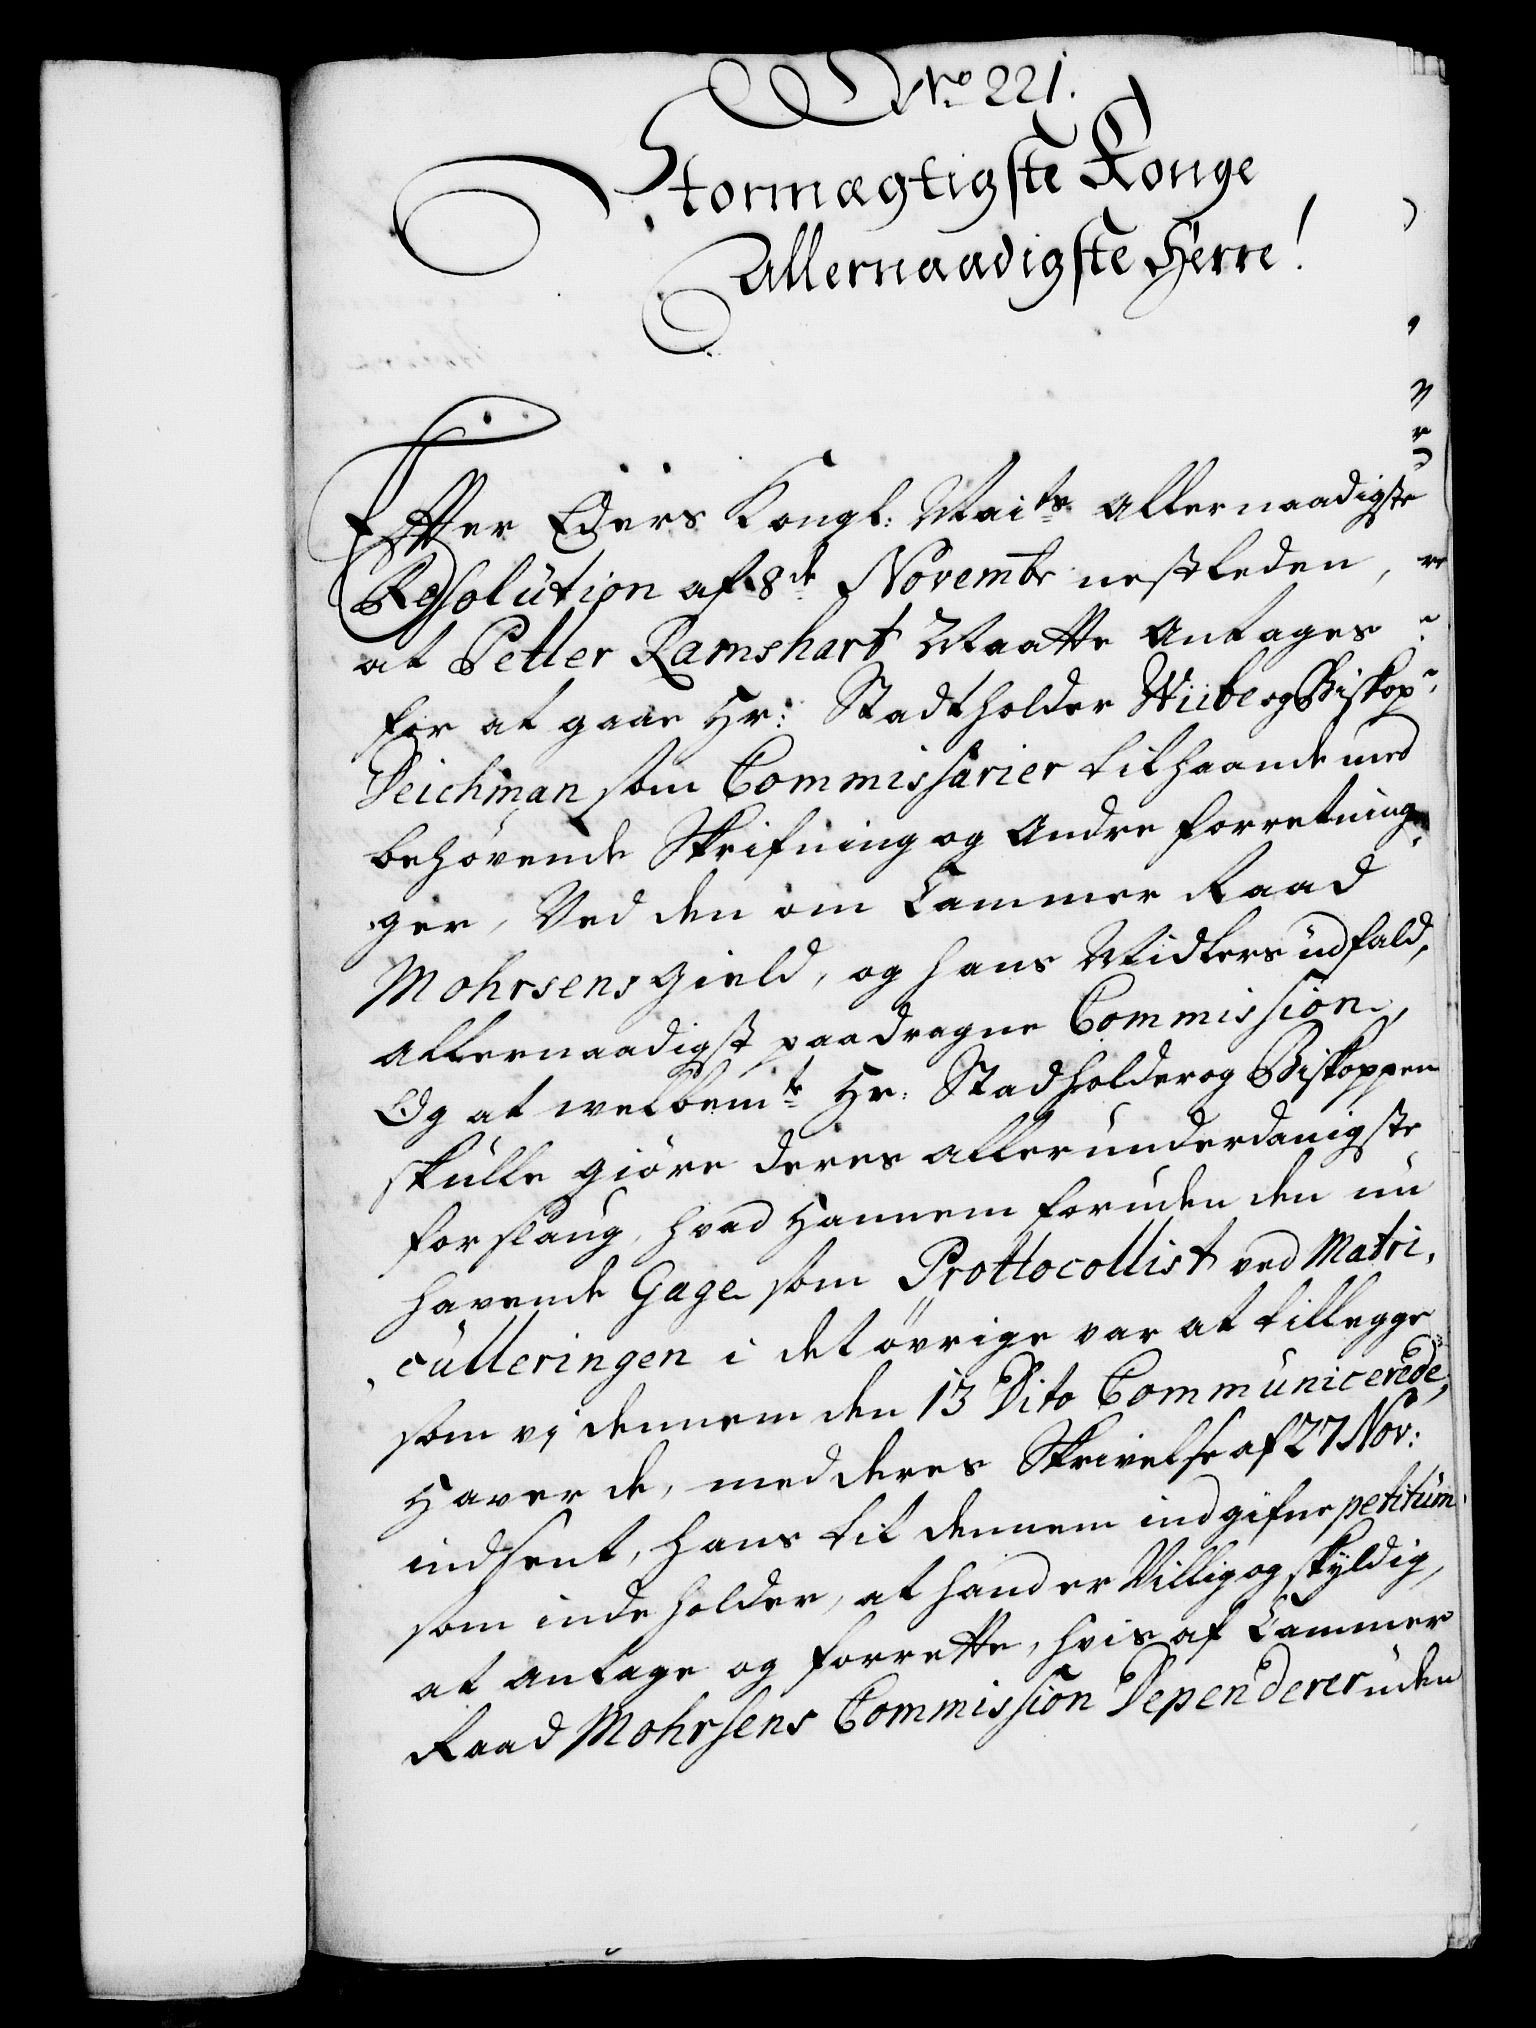 No 221.
Stormægtigste Konge
Allernaadigste Herre!
Efter Eders Kongl: Maits Allernaadigste
Resolution af 8de Novembr nestleden,
at Petter Ramshart Maatte Antages
for at gaae Hr: Stadtholder Wibe og Biskop
Deichman som Commissarier tilhaande med
behøvende Skrifning og Andre forretnin-
ger, Ved den om Cammer Raad
Mohrsens gield, og hans Midlers udfald,
allernaadigst paadragne Commission,
Og at welbemte Hr: Stadholder og Biskoppen
skulle giøre deres allerunderdanigste
forslaug, hvad Hannem foruden den nu
havende Gage som Prottocollist ved Matri-
culleringen i det øvrige var at tillegge
som vj dennem den 13 Dito Communicerede,
Haver de, med deres Skrivelse af 27 Nov:
indsent, hans til dennem indgifne petitum
som indeholder, at hand er Villig og skyldig,
at antage og forrette, hvis af Cammer
Raad Mohrsens Commission Dependerer uden